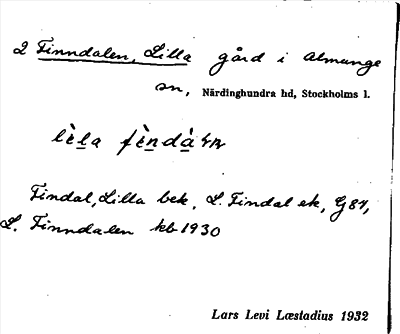 2 Finndalen, Lilla gård i Almunge
sn, Närdinghundra hd, Stockholms l.
Findal, Lilla bek. L. Findal ek, G87,
L. Finndalen kb 1930
Lars Levi Læstadius 1932